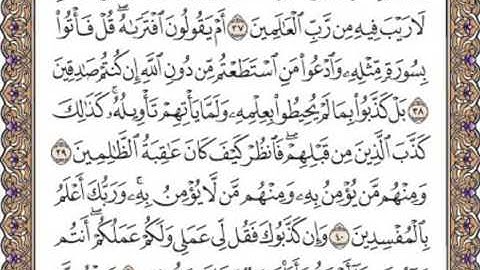 لَا رَيْبَ فِيهِ مِن رَّبِّ ٱلْعَٰلَمِينَ ٣٧ أَمْ يَقُولُونَ ٱفْتَرَىٰهُ ۖ قُلْ فَأْتُوا۟
بِسُورَةٍ مِّثْلِهِۦ وَٱدْعُوا۟ مَنِ ٱسْتَطَعْتُم مِّن دُونِ ٱللَّهِ إِن كُنتُمْ صَٰدِقِينَ
٣٨ بَلْ كَذَّبُوا۟ بِمَا لَمْ يُحِيطُوا۟ بِعِلْمِهِۦ وَلَمَّا يَأْتِهِمْ تَأْوِيلُهُۥ ۚ كَذَٰلِكَ
كَذَّبَ ٱلَّذِينَ مِن قَبْلِهِمْ ۖ فَٱنظُرْ كَيْفَ كَانَ عَٰقِبَةُ ٱلظَّٰلِمِينَ ٣٩
وَمِنْهُم مَّن يُؤْمِنُ بِهِۦ وَمِنْهُم مَّن لَّا يُؤْمِنُ بِهِۦ ۚ وَرَبُّكَ أَعْلَمُ
بِٱلْمُفْسِدِينَ ٤٠ وَإِن كَذَّبُوكَ فَقُل لِّى عَمَلِى وَلَكُمْ عَمَلُكُمْ ۖ أَنتُم